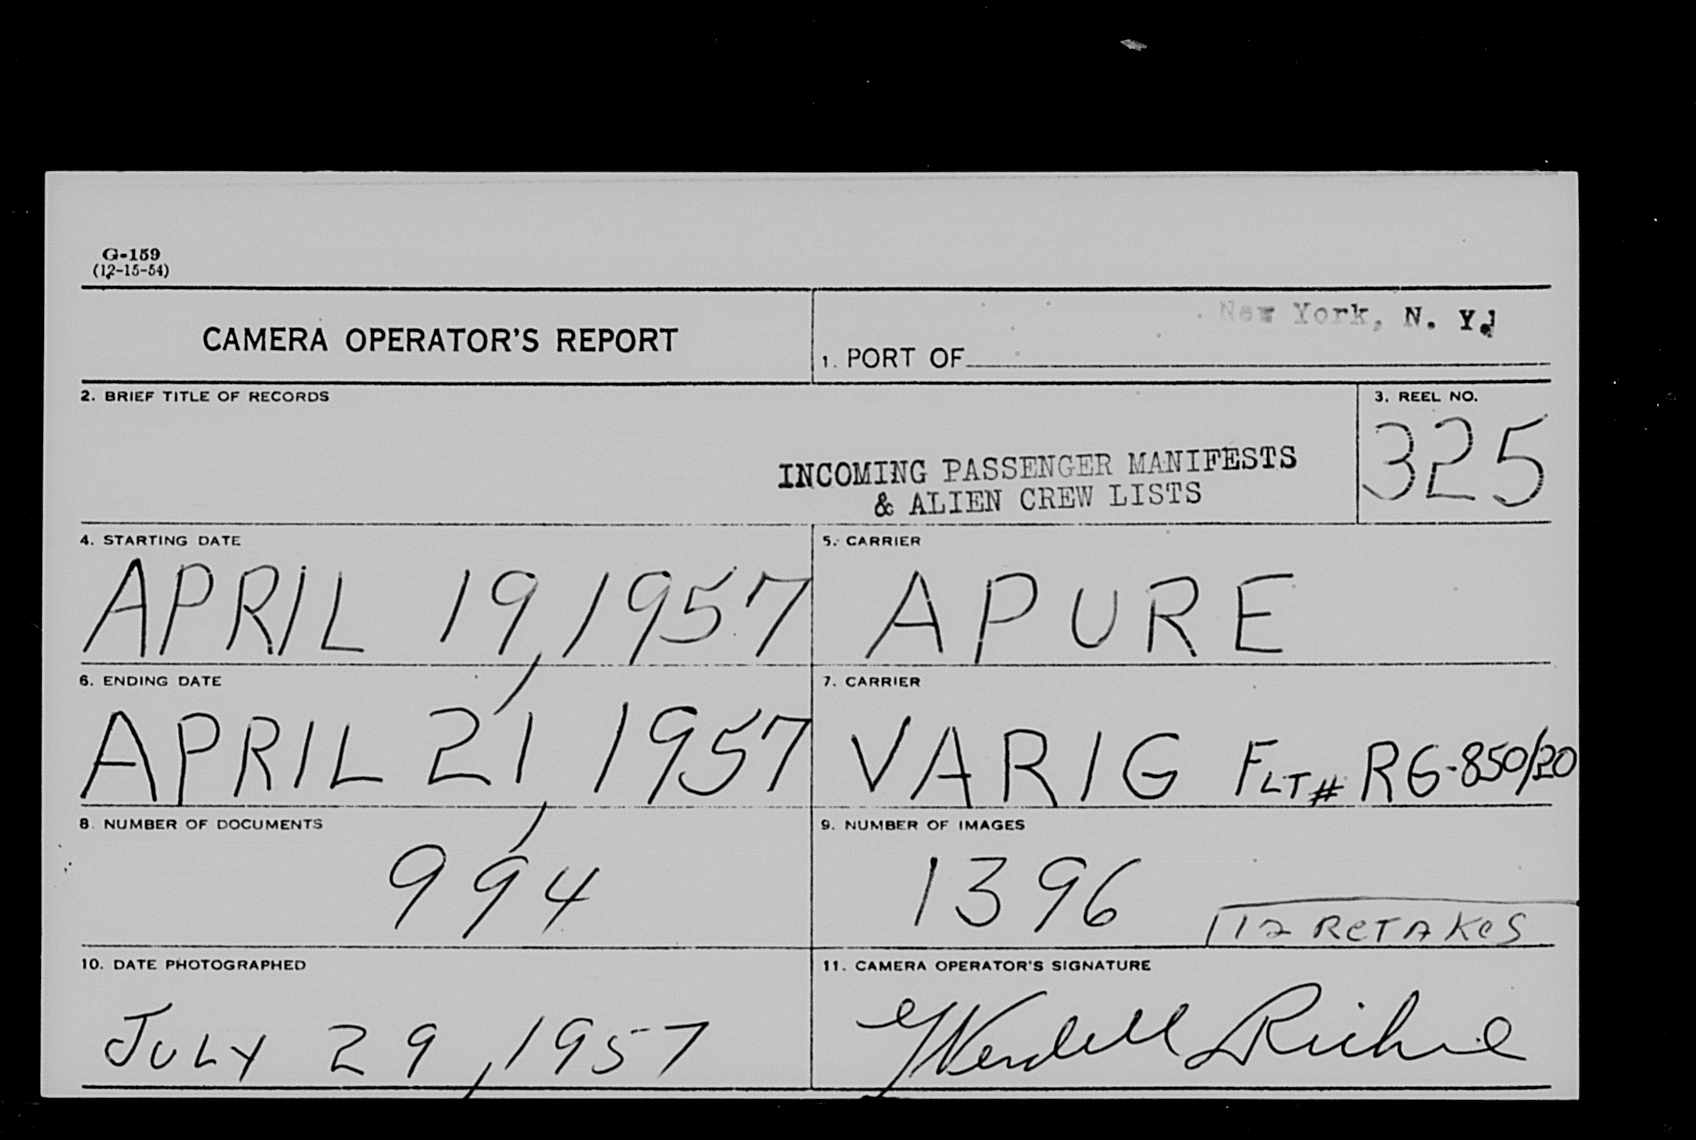 G-159
(12-15-54)
CAMERA OPERATOR'S REPORT
New York, N. Y.
1. PORT OF
2. BRIEF TITLE OF RECORDS
INCOMING PASSENGER MANIFESTS
& ALIEN CREW LISTS
3. REEL NO.
325
4. STARTING DATE
APRIL 19, 1957
5. CARRIER
APURE
6. ENDING DATE
APRIL 21, 1957
7. CARRIER
VARIG FLT# RG-850/20
8. NUMBER OF DOCUMENTS
994
9. NUMBER OF IMAGES
1396
12 RETAKES
10. DATE PHOTOGRAPHED
JULY 29, 1957
11. CAMERA OPERATOR'S SIGNATURE
Wendell